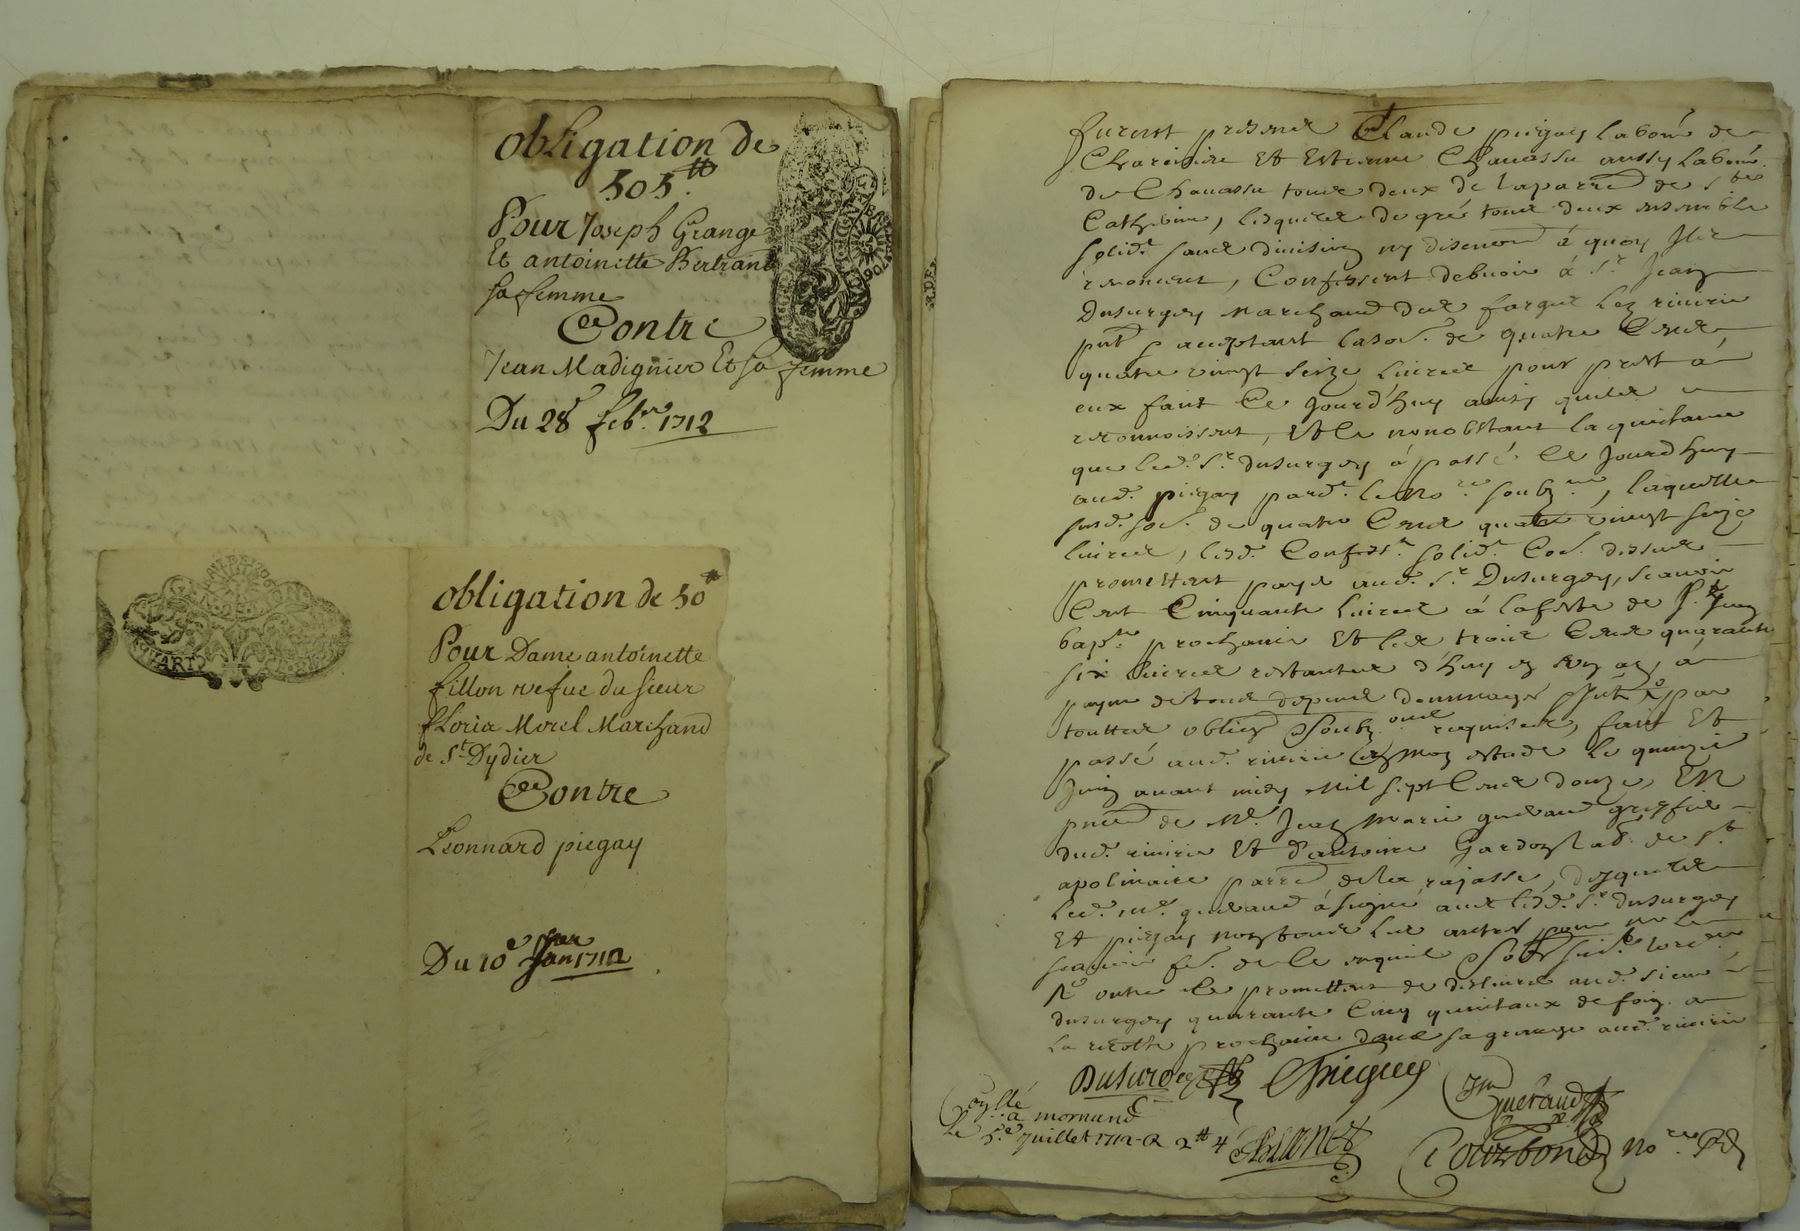 obligation de
505.tt
Pour Joseph Grange
Et antoinette Bertrand
sa femme
Contre
Jean Madignier Et sa femme
Du 28e feb.r 1712
obligation de 50tt
Pour Dame antoinette
fillon vefue du sieur
floris Morel Marchand
de St Dydier
Contre
Leonnard piegay
Du 10e Jan 1712
furent presens Claude piegay labour de
Et Estienne Chauassu aussy labour.
de Chauassu tous deux de la parre de Ste
Catherine, lesquels de gré tous deux ensemble
solid.t sans diuision ny discution à quoy Ils
renoncent, Confessent debuoir à Sr Jean
Dusurgey marchand des farges lez riuirie
pnt & acceptant la so.e de quatre Cens
quatre vingt seize liures pour prest à
eux fait Ce Jourd'huy ainsy quils
reconnoissent, Et Ce nonobstant la quittance
que led. Sr dusurgey à passé Ce Jourd'huy
aud. piegay pard.t le No.re soubz.né, laquelle
susd. so.e de quatre Cens quatre vingt seize
liures, lesd. Confess.ts solid.t Co.e dessus
promettent payer aud. Sr Dusurgey, scauoir
Cent Cinquante liures à la feste de St Jean
bap.te prochaine Et les trois Cens quarante
six liures restantes d'huy en un an, à
peyne de tous depens dommages
touttes oblig.
passé aud. riuirie En mon estude le quinzie
Juin auant midy Mil sept Cens douze, EN
pnce de Me. Jean Marie gueraud greffier
dud. riuirie Et d'antoine Gardon lab.r de St.
apolinaire parre de la rajasse, desquels
led. me. gueraud à signé auec lesd. Sr. dusurgey
Et piegay non
scauoir f.e de Ce enquis
outre Ce promettent de deliurer aud. sieur
dusurgey quarante Cinq quintaux de foin a
la recolte prochaine dans sa grange aud. riuirie
Dusurgey Piegay
Gueraud
à mornand
le 5.e Juillet 1712
No.re